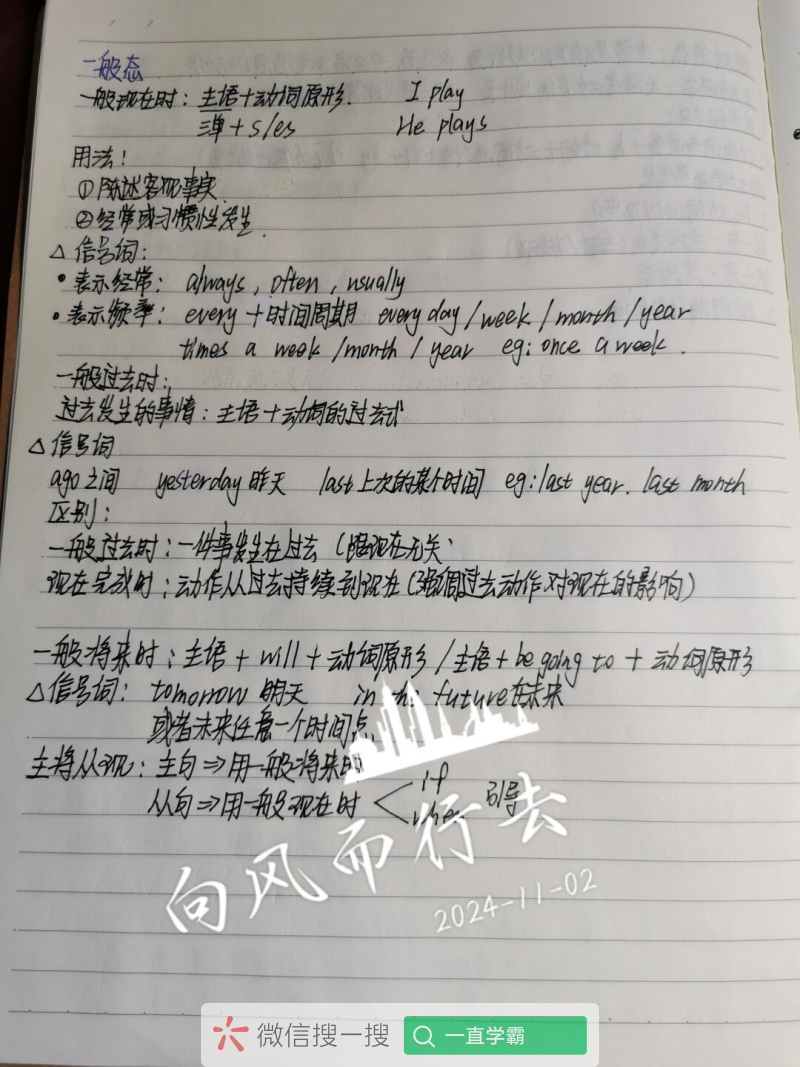 一般态
一般现在时：主语+动词原形. I play
三单+s/es He plays
用法！
①陈述客观事实
②经常或习惯性发生.
△信号词：
•表示经常：always, often, usually
•表示频率：every+时间周期 every day/week/month/year
times a week/month/year eg: once a week.
一般过去时：
过去发生的事情：主语+动词的过去式
△信号词
ago之间 yesterday昨天 last上次的某个时间 eg: last year. last month
区别：
一般过去时：一件事发生在过去（跟现在无关
现在完成时：动作从过去持续到现在（强调过去动作对现在的影响）
一般将来时：主语+will+动词原形/主语+be going to+动词原形
△信号词：tomorrow明天 in the future在未来
或者未来任意一个时间点.
主将从现：主句⇒用一般将来时
从句⇒用一般现在时 < if 引导
向风而行去
2024-11-02
微信搜一搜 一直学霸